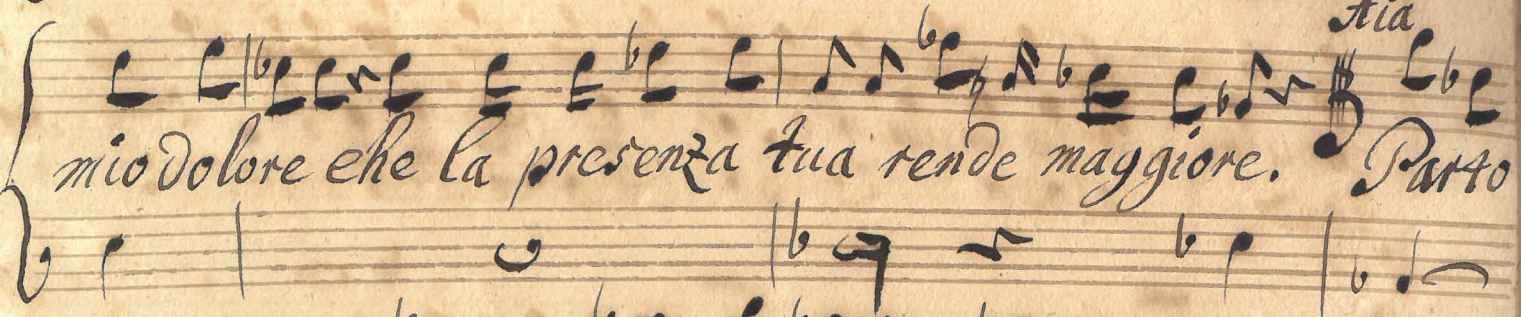 Aia
mio dolore che la presenza tua rende maggiore. Parto